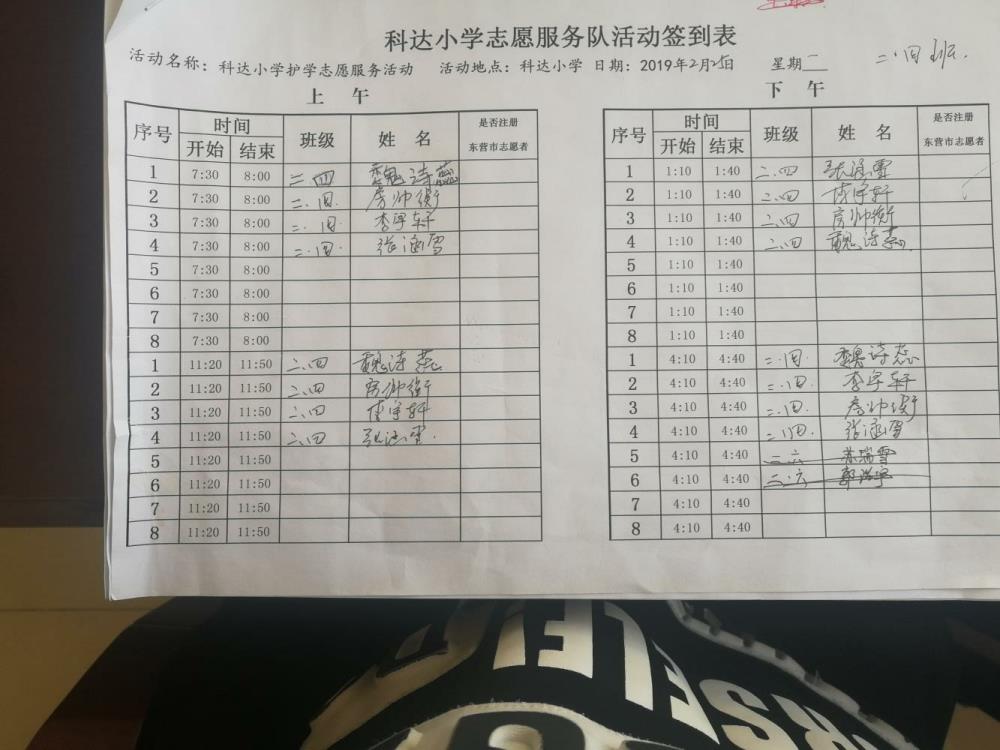 科达小学志愿服务队活动签到表
活动名称：科达小学护学志愿服务活动 活动地点：科达小学 日期：2019年2月25日 星期二 二.四班.
上 午
序号 时间 班级 姓名 是否注册东营市志愿者
开始 结束
1 7:30 8:00 二.四 魏诗蕊
2 7:30 8:00 二.四. 房帅衡
3 7:30 8:00 二.四. 李宇轩
4 7:30 8:00 二.四. 张涵雪
5 7:30 8:00
6 7:30 8:00
7 7:30 8:00
8 7:30 8:00
1 11:20 11:50 二.四 魏诗蕊
2 11:20 11:50 二.四 房帅衡
3 11:20 11:50 二.四 李宇轩
4 11:20 11:50 二.四 张涵雪.
5 11:20 11:50
6 11:20 11:50
7 11:20 11:50
8 11:20 11:50
下 午
序号 时间 班级 姓名 是否注册东营市志愿者
开始 结束
1 1:10 1:40 二.四 张涵雪
2 1:10 1:40 二.四 李宇轩
3 1:10 1:40 二.四 房帅衡
4 1:10 1:40 二.四 魏诗蕊.
5 1:10 1:40
6 1:10 1:40
7 1:10 1:40
8 1:10 1:40
1 4:10 4:40 二.四. 魏诗蕊
2 4:10 4:40 二.四. 李宇轩
3 4:10 4:40 二.四. 房帅衡
4 4:10 4:40 二.四. 张涵雪
5 4:10 4:40 二.六 苏瑞雪
6 4:10 4:40 二.六
7 4:10 4:40
8 4:10 4:40